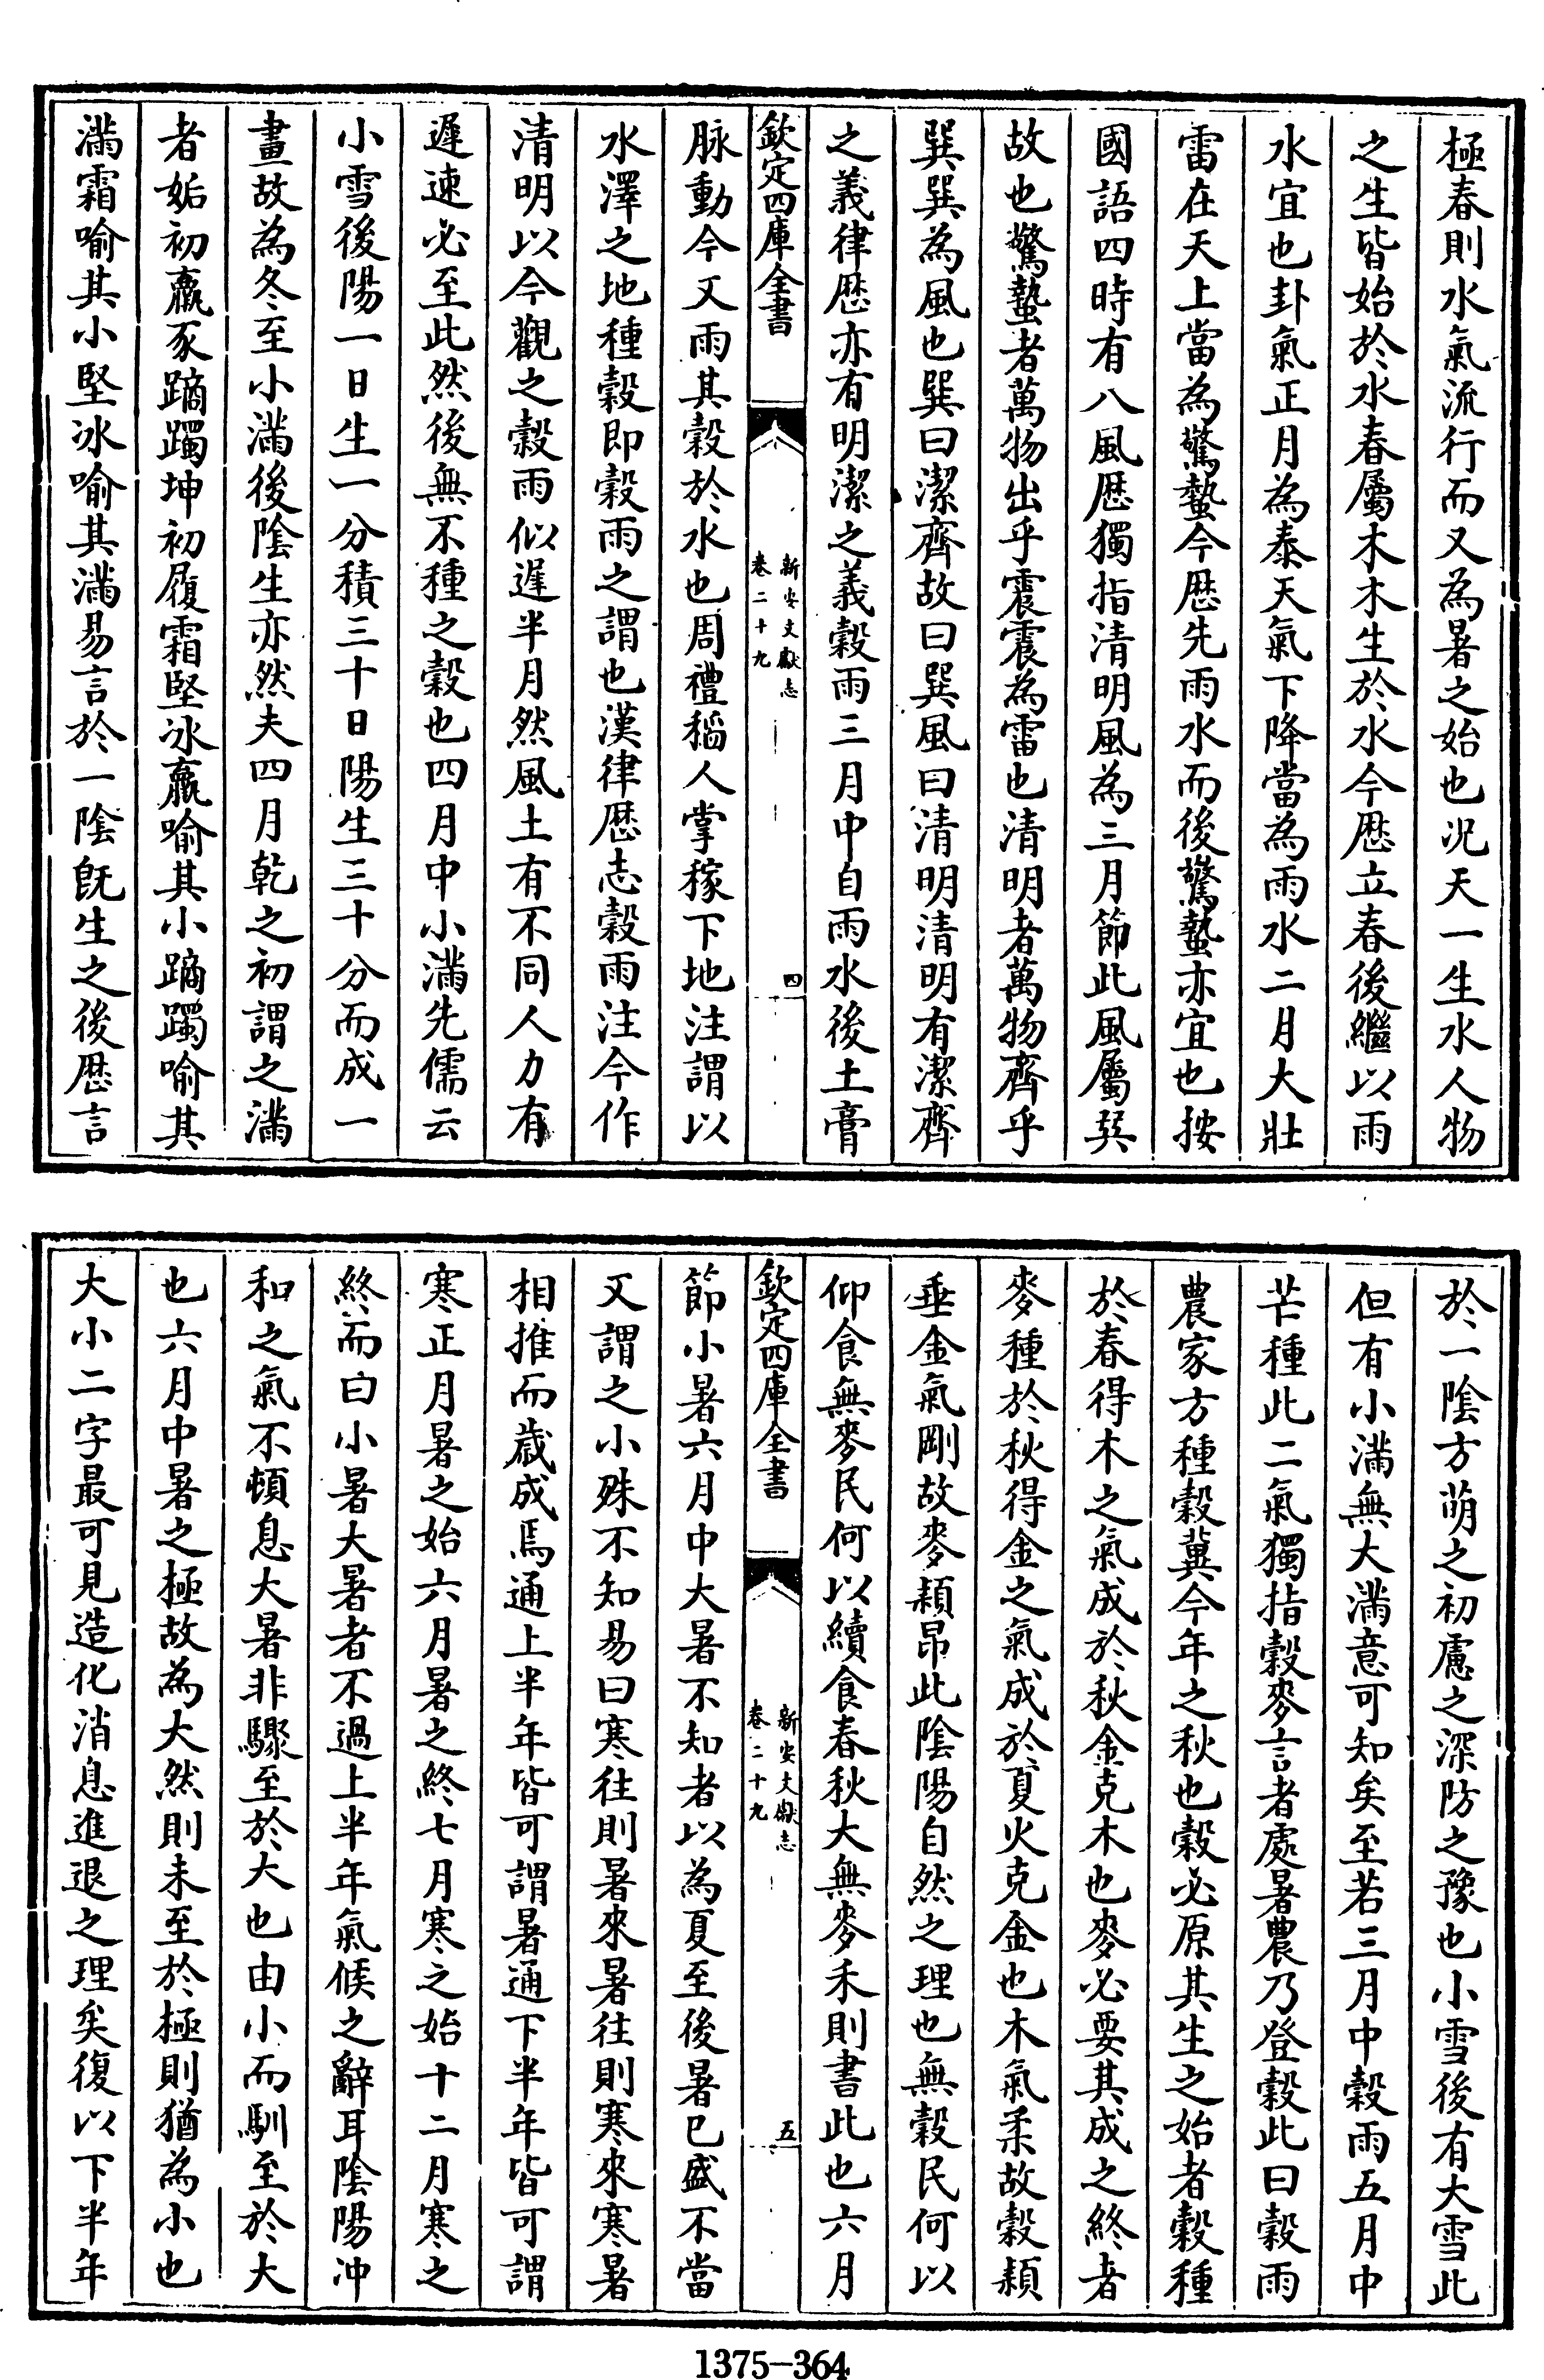 極春則水氣流行而又為暑之始也况天一生水人物
之生皆始於水春屬木木生於水今厯立春後繼以雨
水宜也卦氣正月為泰天氣下降當為雨水二月大壯
雷在天上當為驚蟄今厯先雨水而後驚蟄亦宜也按
國語四時有八風厯獨指清明風為三月節此風屬巽
故也驚蟄者萬物出乎震震為雷也清明者萬物齊乎
巽巽為風也巽曰潔齊故曰巽風曰清明清明有潔齊
之義律厯亦有明潔之義穀雨三月中自雨水後土膏
欽定四庫全書
新安文獻志
卷二十九
四
脉動今又雨其穀於水也周禮稻人掌稼下地注謂以
水澤之地種穀即穀雨之謂也漢律厯志穀雨注今作
清明以今觀之穀雨似遲半月然風土有不同人力有
遲速必至此然後無不種之穀也四月中小滿先儒云
小雪後陽一日生一分積三十日陽生三十分而成一
畫故為冬至小滿後陰生亦然夫四月乾之初謂之滿
者姤初羸豕蹢躅坤初履霜堅冰羸喻其小蹢躅喻其
滿霜喻其小堅冰喻其滿易言於一陰既生之後厯言
於一陰方萌之初慮之深防之豫也小雪後有大雪此
但有小滿無大滿意可知矣至若三月中穀雨五月中
芒種此二氣獨指穀麥言者處暑農乃登穀此曰穀雨
農家方種穀冀今年之秋也穀必原其生之始者穀種
於春得木之氣成於秋金克木也麥必要其成之終者
麥種於秋得金之氣成於夏火克金也木氣柔故穀穎
垂金氣剛故麥穎昂此陰陽自然之理也無穀民何以
仰食無麥民何以續食春秋大無麥禾則書此也六月
欽定四庫全書
新安文獻志
卷二十九
五
節小暑六月中大暑不知者以為夏至後暑已盛不當
又謂之小殊不知易曰寒往則暑來暑往則寒來寒暑
相推而歲成焉通上半年皆可謂暑通下半年皆可謂
寒正月暑之始六月暑之終七月寒之始十二月寒之
終而曰小暑大暑者不過上半年氣候之辭耳陰陽冲
和之氣不頓息大暑非驟至於大也由小而馴至於大
也六月中暑之極故為大然則未至於極則猶為小也
大小二字最可見造化消息進退之理矣復以下半年
1375-364